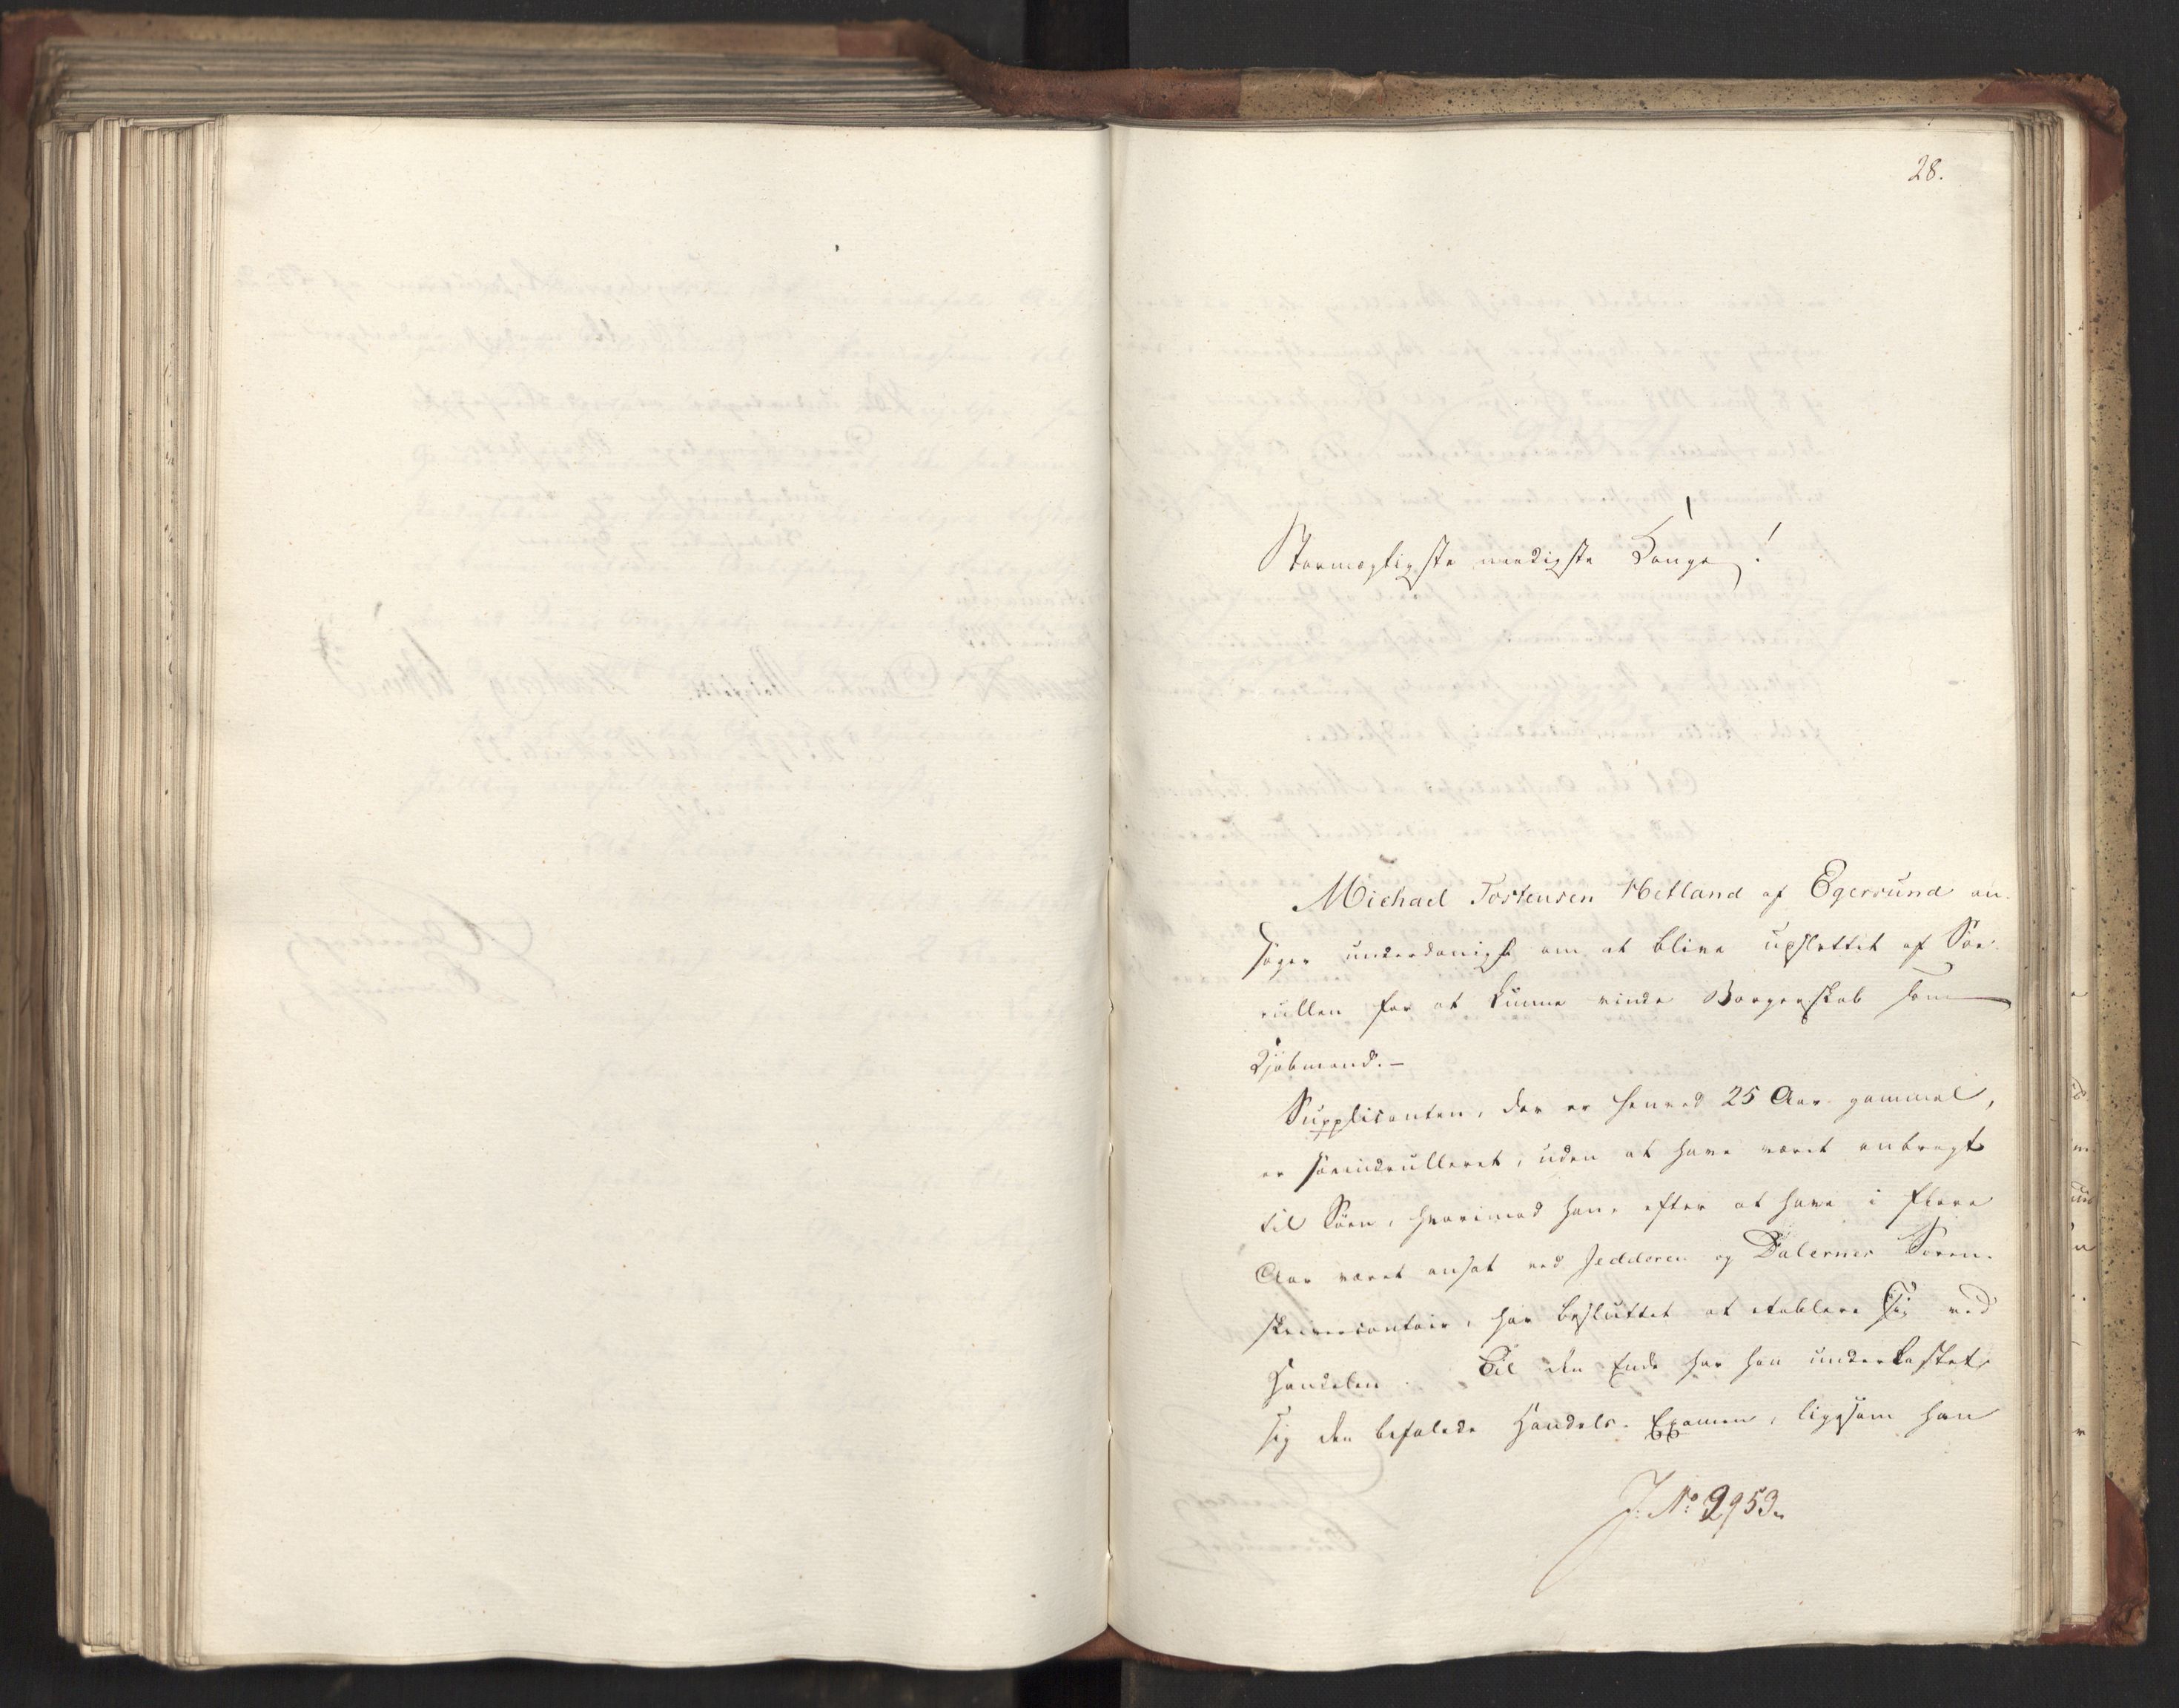 28.
Stormægtigste naadigste Konge!
Michael Tostensen Hetland af Egersund an-
søger underdanigst om at blive udslettet af Søe-
rullen for at kunne vinde Borgerskab som
Kjøbmand.—
Supplicanten, der er henved 25 Aar gammel,
er søeindrulleret, uden at have været anbragt
til Søen, hvorimod han, efter at have i flere
Aar været ansat ved Jedderen og Dalernes Soren-
skrivercontoir, har besluttet at etablere sig ved
Handelen. Til den Ende har han underkastet
sig den befalede Handels-Examen, ligesom han
J. No 2953.